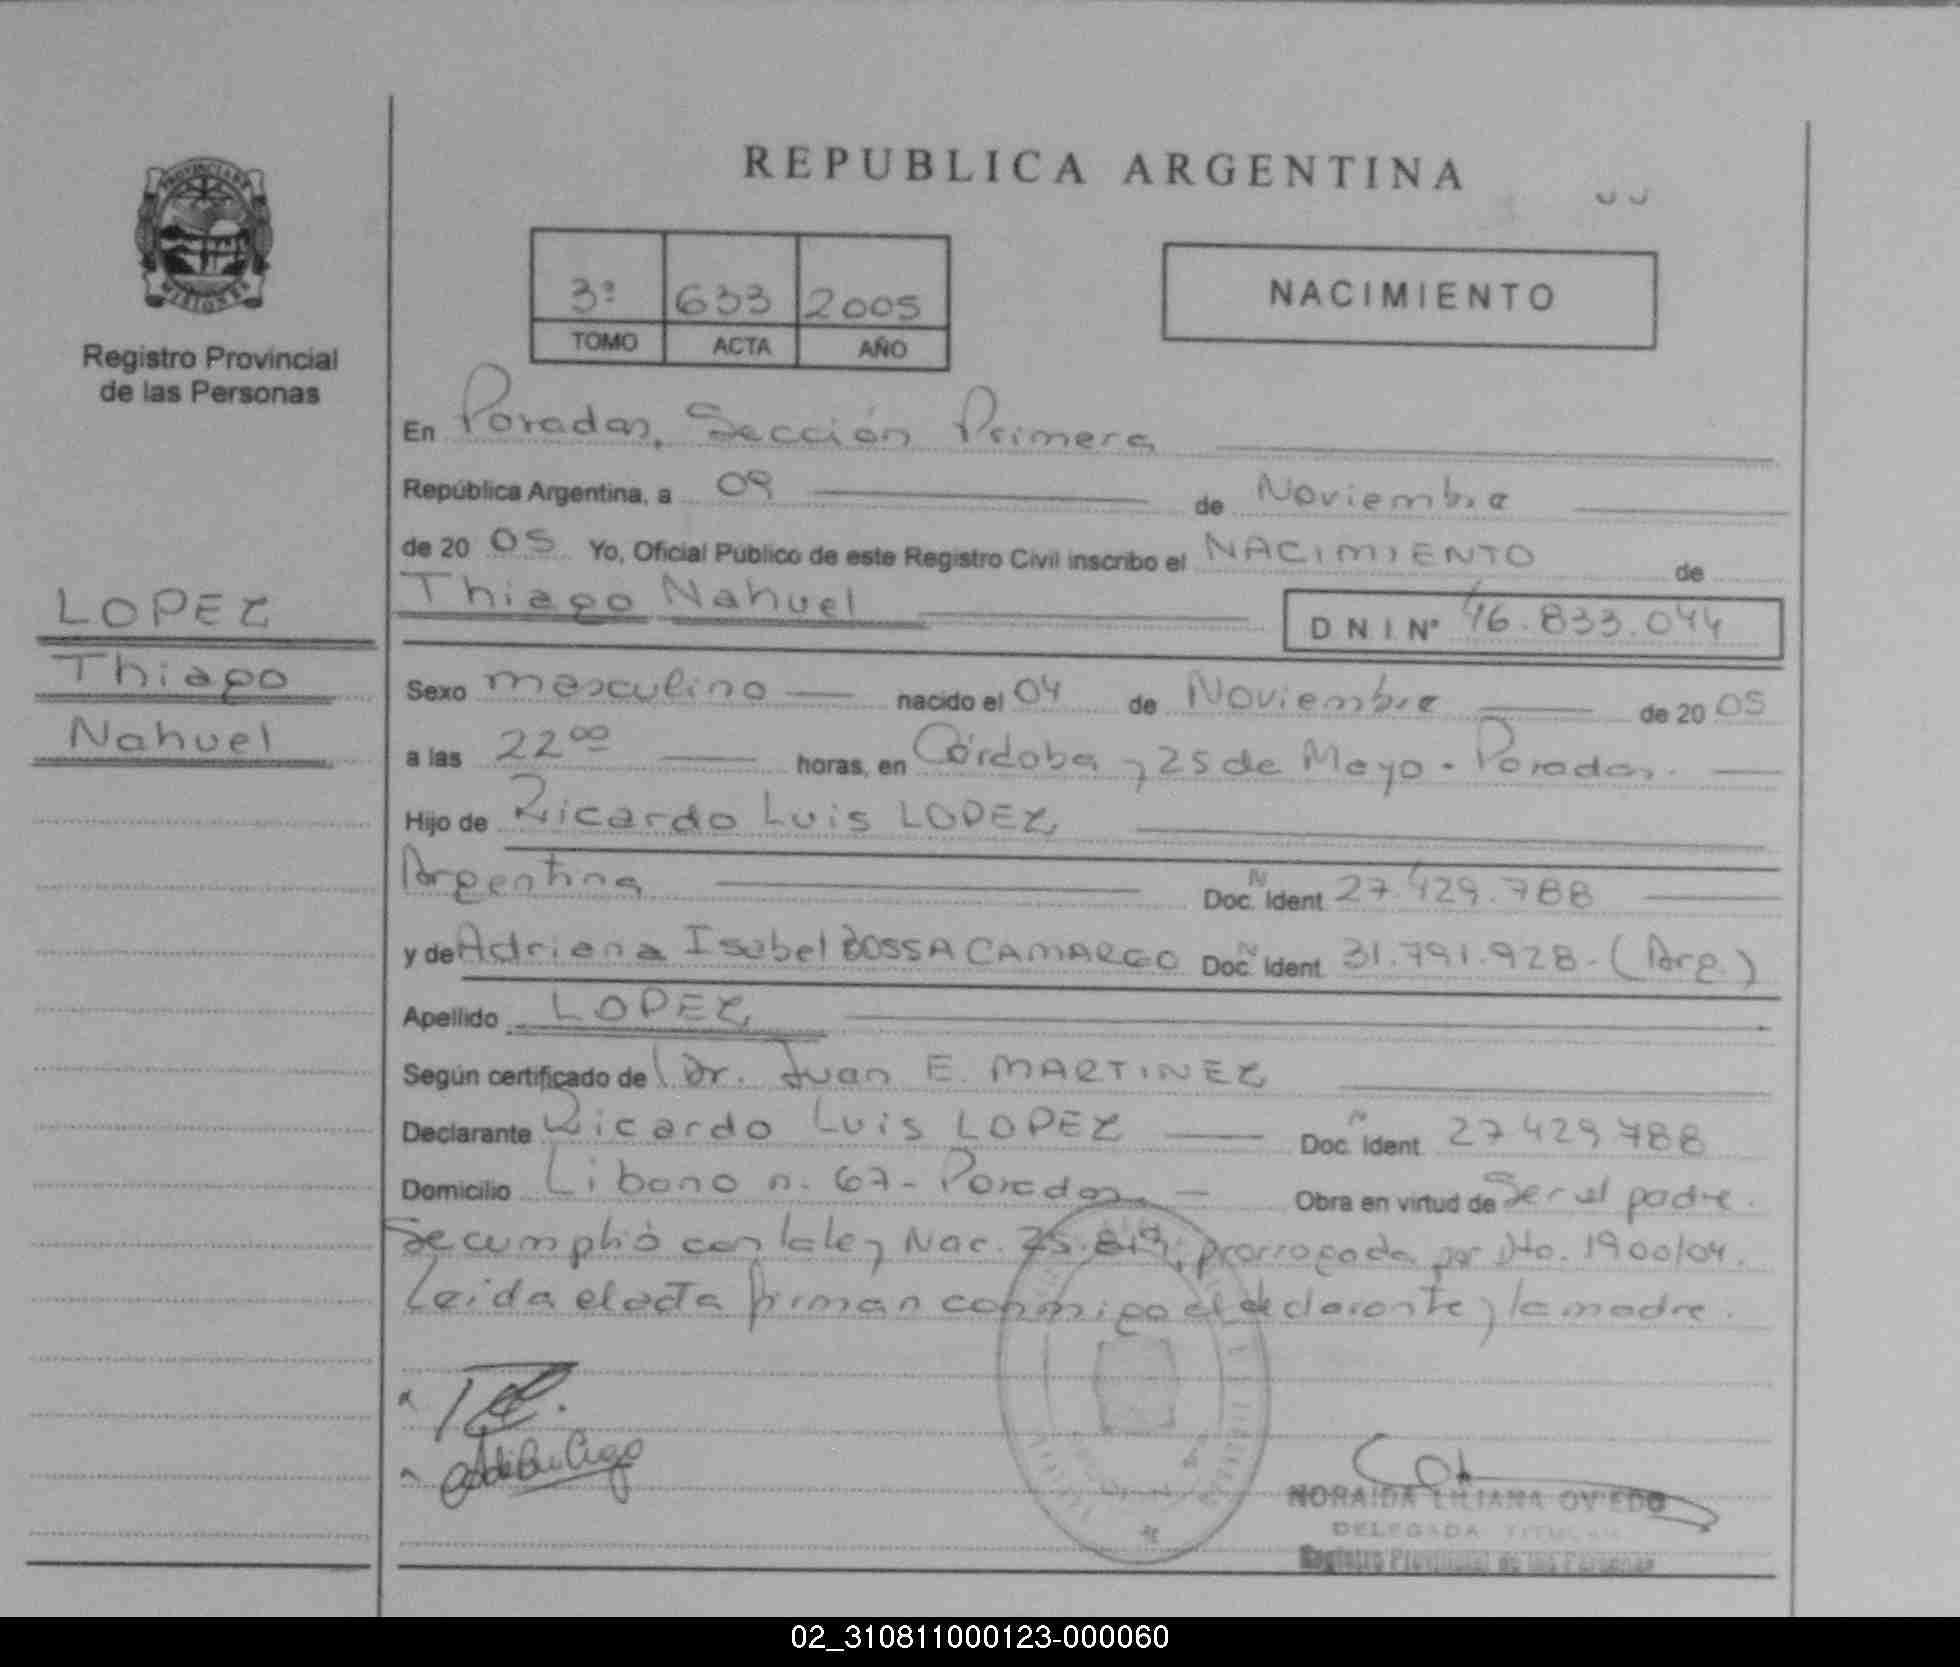 REPUBLICA ARGENTINA
PROVINCIA DE
MISIONES
Registro Provincial
de las Personas
3º 633 2005
TOMO ACTA AÑO
NACIMIENTO
En Posadas, Sección Primera
República Argentina, a 09 de Noviembre
de 20 05 Yo, Oficial Público de este Registro Civil inscribo el NACIMIENTO de
Thiago Nahuel
D N I Nº 46.833.044
LOPEZ
Thiago
Nahuel
Sexo masculino nacido el 04 de Noviembre de 20 05
a las 22 00 horas, en Córdoba y 25 de Mayo - Posadas.
Hijo de Ricardo Luis LOPEZ
Argentina Doc. N Ident 27.429.788
y de Adriana Isabel BOSSA CAMARGO Doc. N Ident 31.791.928 - (Arg.)
Apellido LOPEZ
Según certificado de l Dr. Juan E. MARTINEZ
Declarante Ricardo Luis LOPEZ Doc. N Ident 27 429 788
Domicilio Libano n. 67 - Posadas Obra en virtud de Ser el padre.
Se cumplió con la ley Nac. 25.819, prorrogada por Dto. 1900/04.
Leida el acta firman conmigo el declarante y la madre.
NORAIDA LILIANA OVIEDO
DELEGADA TITULAR
Registro Provincial de las Personas
02_310811000123-000060